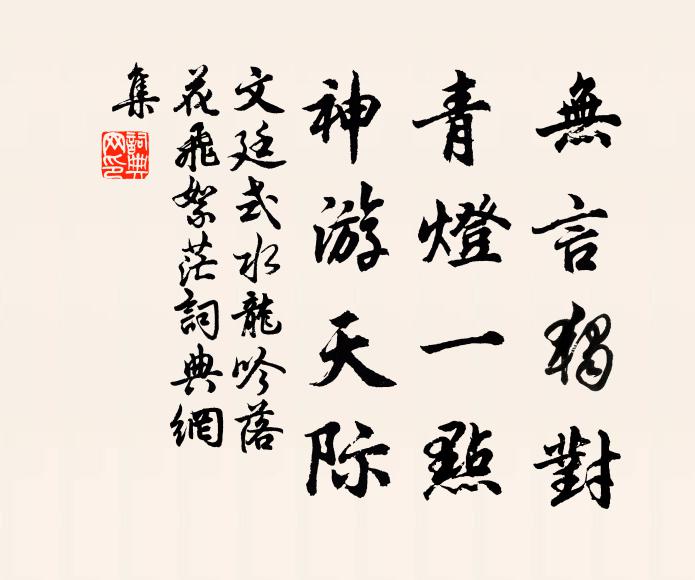 無言獨對
青燈一點
神游天际
文廷式水龍吟落
花飛絮茫詞典網
集
詞典
网印